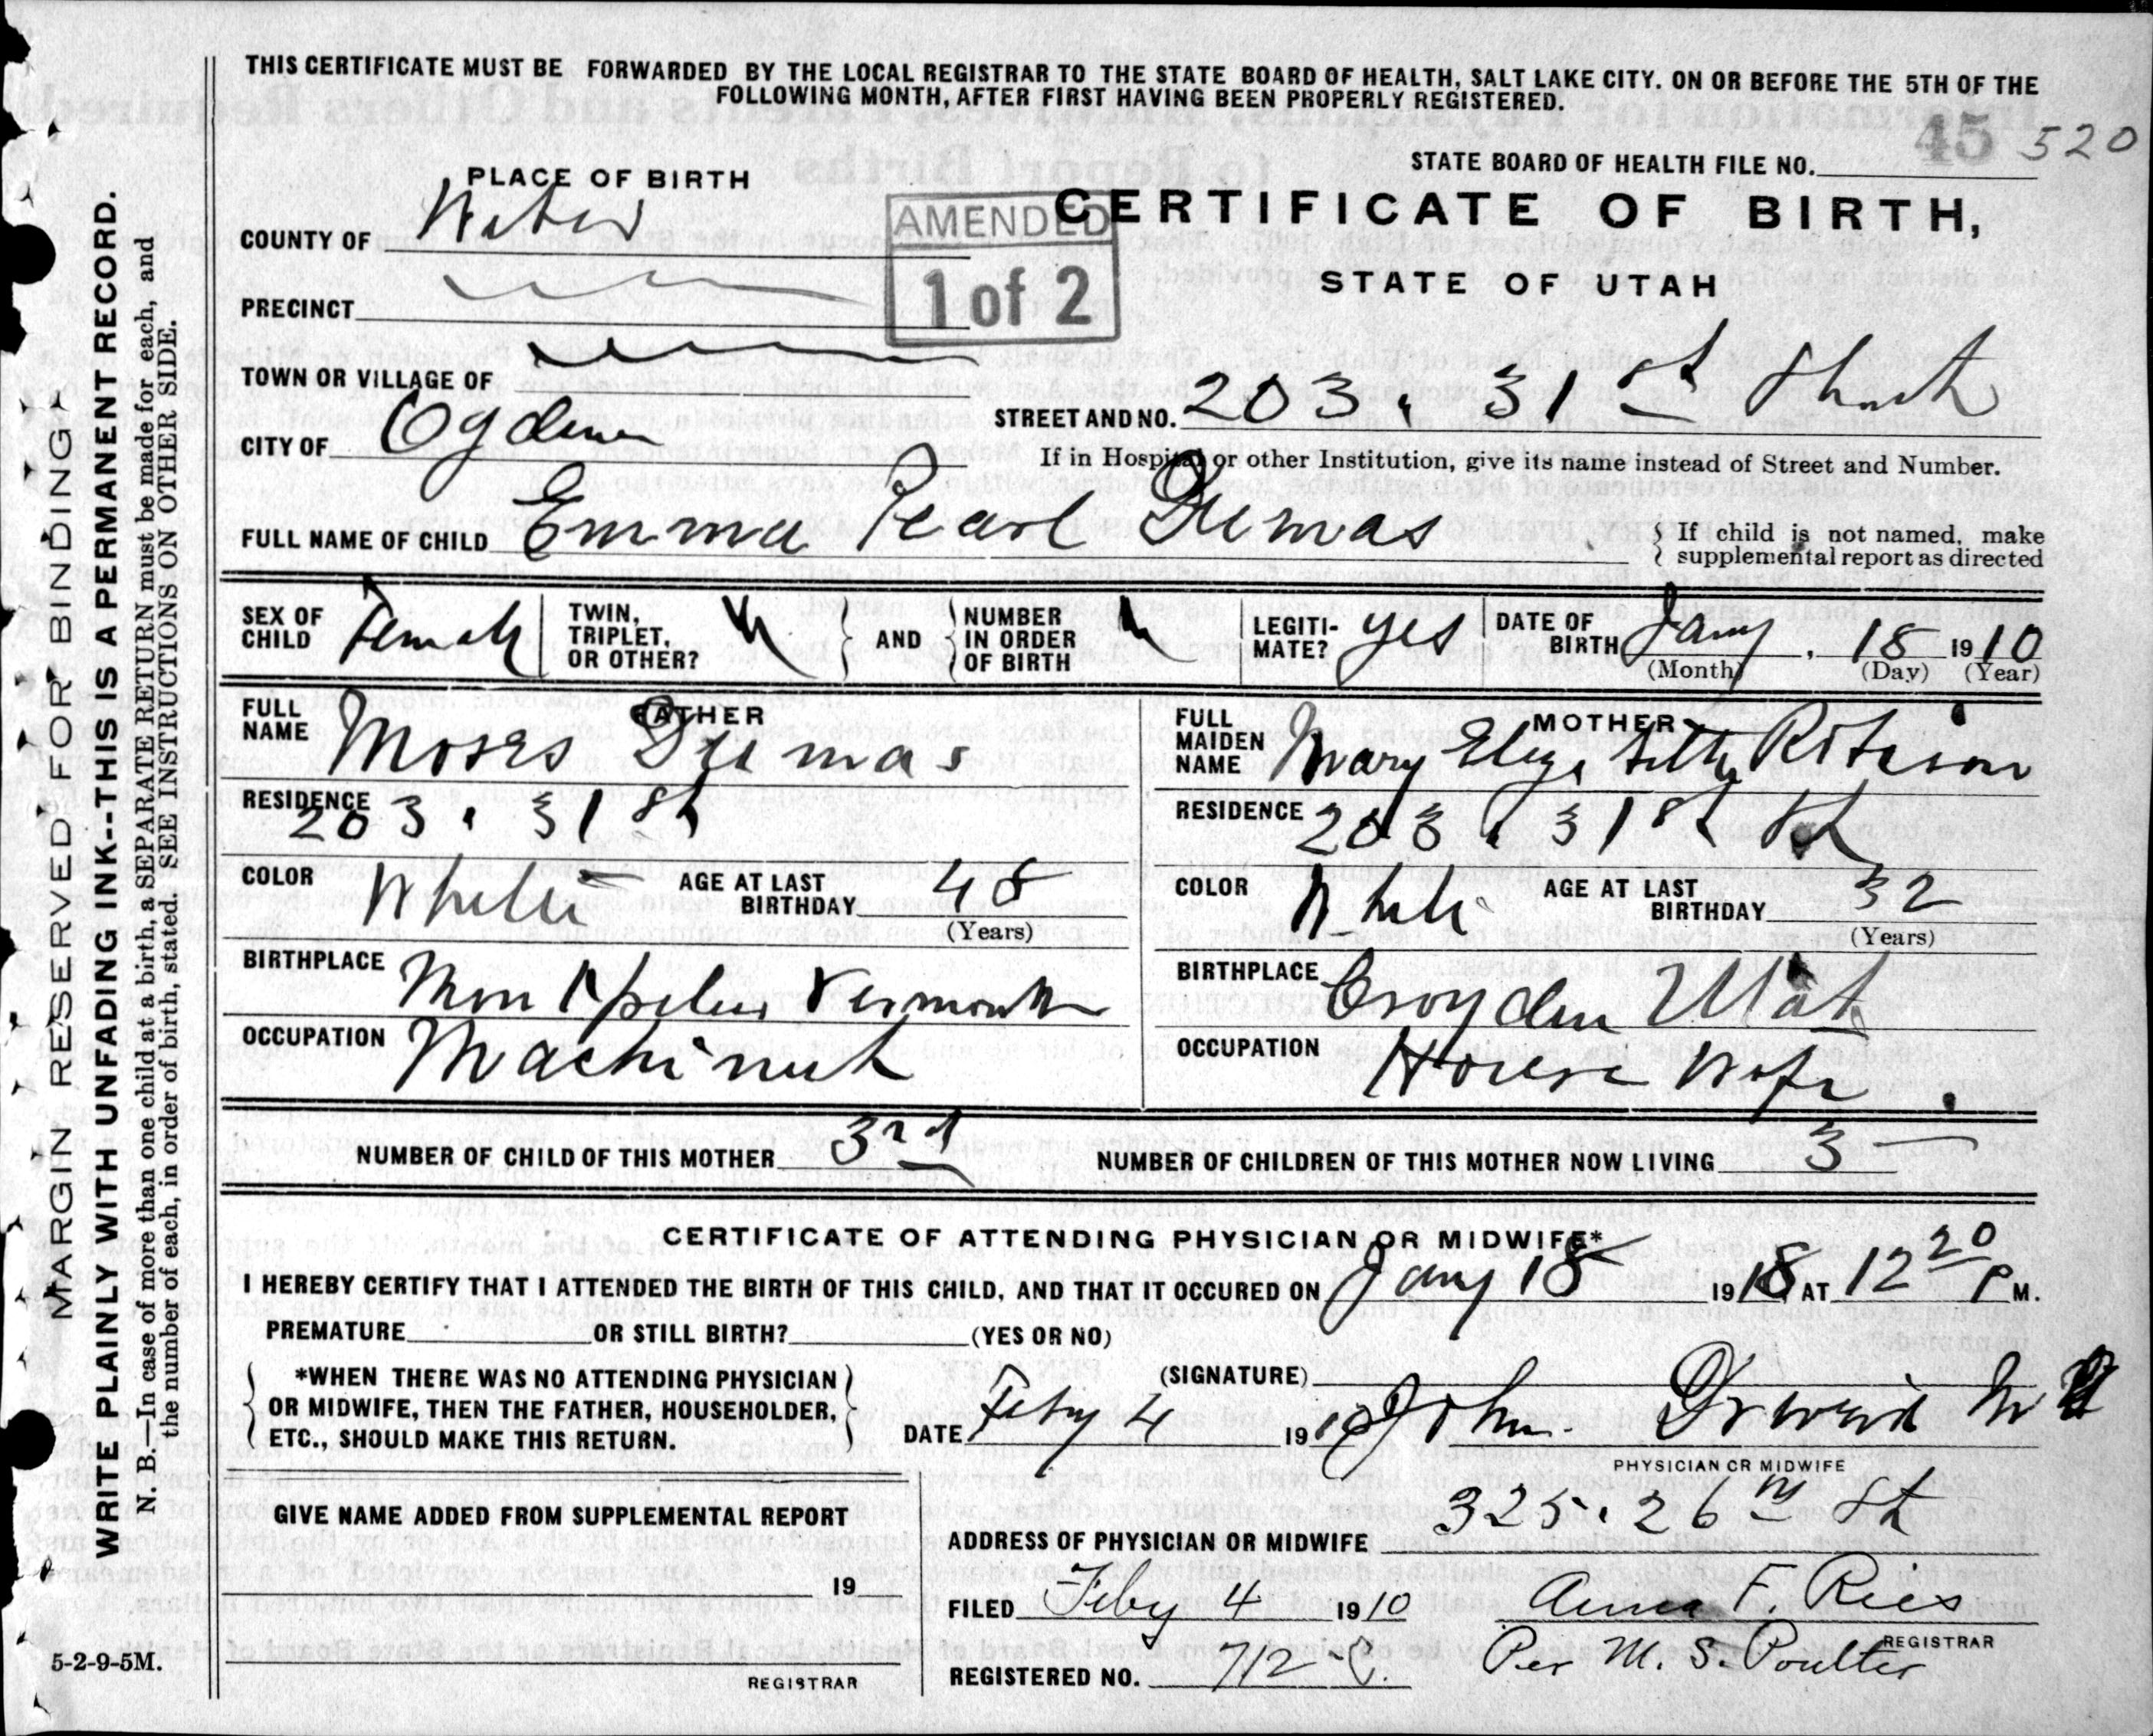 THIS CERTIFICATE MUST BE FORWARDED BY THE LOCAL REGISTRAR TO THE STATE BOARD OF HEALTH, SALT LAKE CITY. ON OR BEFORE THE 5TH OF THE
FOLLOWING MONTH, AFTER FIRST HAVING BEEN PROPERLY REGISTERED.
45 520
STATE BOARD OF HEALTH FILE NO.
PLACE OF BIRTH
CERTIFICATE OF BIRTH,
STATE OF UTAH
AMENDED
1 of 2
COUNTY OF Weber
PRECINCT
TOWN OR VILLAGE OF
STREET AND NO. 203. 31st Street
CITY OF Ogden
If in Hospital or other Institution, give its name instead of Street and Number.
FULL NAME OF CHILD Emma Pearl Dumas
If child is not named, make
supplemental report as directed
SEX OF CHILD Female
TWIN, TRIPLET, OR OTHER?
AND
NUMBER IN ORDER OF BIRTH
LEGITIMATE? yes
DATE OF BIRTH Jany. 18 1910
(Month) (Day) (Year)
FATHER
FULL NAME Moses Dumas
RESIDENCE 203. 31 St
COLOR White
AGE AT LAST BIRTHDAY 48
(Years)
BIRTHPLACE Montpelier Vermont
OCCUPATION Machinist
MOTHER
FULL MAIDEN NAME Mary Eliza
RESIDENCE 203. 31st St
COLOR White
AGE AT LAST BIRTHDAY 32
(Years)
BIRTHPLACE Croyden Utah
OCCUPATION House Wife
NUMBER OF CHILD OF THIS MOTHER 3rd
NUMBER OF CHILDREN OF THIS MOTHER NOW LIVING 3
CERTIFICATE OF ATTENDING PHYSICIAN OR MIDWIFE*
I HEREBY CERTIFY THAT I ATTENDED THE BIRTH OF THIS CHILD, AND THAT IT OCCURED ON Jany 18 19 AT 12 20 P M.
PREMATURE OR STILL BIRTH? (YES OR NO)
*WHEN THERE WAS NO ATTENDING PHYSICIAN
OR MIDWIFE, THEN THE FATHER, HOUSEHOLDER,
ETC., SHOULD MAKE THIS RETURN.
(SIGNATURE) John
DATE Feby 4 1910
PHYSICIAN OR MIDWIFE
GIVE NAME ADDED FROM SUPPLEMENTAL REPORT
19
REGISTRAR
ADDRESS OF PHYSICIAN OR MIDWIFE 325. 26th St
FILED Feby 4 1910
Anna F. Ries
REGISTRAR
REGISTERED NO. 712
Per M. S. Poulter
5-2-9-5M.
MARGIN RESERVED FOR BINDING
WRITE PLAINLY WITH UNFADING INK--THIS IS A PERMANENT RECORD.
N. B.—In case of more than one child at a birth, a SEPARATE RETURN must be made for each, and
the number of each, in order of birth, stated. SEE INSTRUCTIONS ON OTHER SIDE.